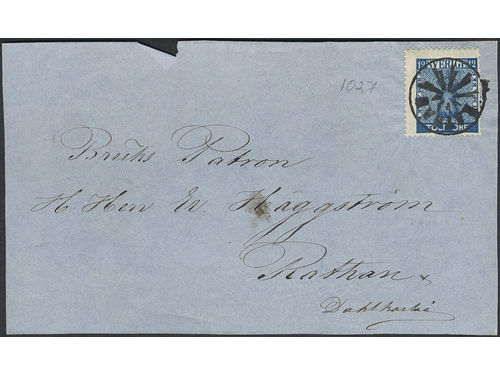 1027
12 SVERIGE 12
TOLF ÖRE
Bruks Patron
H. Herr W. Häggström
Rathan
Dahlkarlså